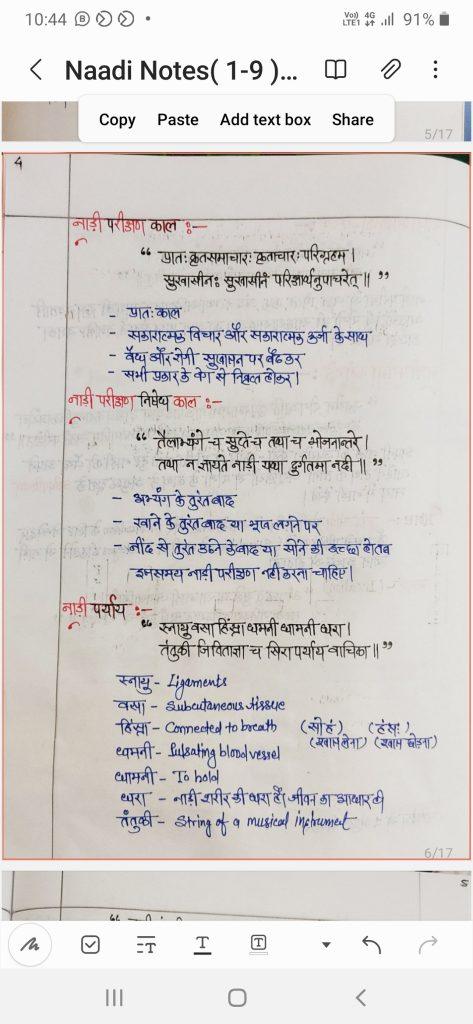 10:44
Vo)) 4G
LTE1
91%
Naadi Notes( 1-9 )...
Copy Paste Add text box Share
5/17
4
नाड़ी परीक्षण काल :-
“ प्रातः कृतसमाचारः कृताचारः परिग्रहम् ।
सुखासीनः सुखासीनं परिक्षार्थमुपाचरेत् ॥ ”
प्रातः काल
- सकारात्मक विचार और सकारात्मक ऊर्जा के साथ
- वैद्य और रोगी सुखासन पर बैठकर
- सभी प्रकार के वेग से निवृत्त होकर।
नाड़ी परीक्षण निषेध काल :-
“ तैलाभ्यंगे च सुप्ते च तथा च भोजनान्तरे ।
तथा न ज्ञायते नाड़ी यथा दुर्गतमा नदी ॥ ”
- अभ्यंग के तुरंत बाद
- खाने के तुरंत बाद या भूख लगने पर
- नींद से तुरंत उठने के बाद या सोने की इच्छा हो तब
इस समय नाड़ी परीक्षण नहीं करना चाहिए।
नाड़ी पर्याय :-
“ स्नायु वसा हिंस्रा धमनी धामनी धरा ।
तंतुकी जिवितज्ञा च सिरा पर्याय वाचिका ॥ ”
स्नायु - Ligaments
वसा - Subcutaneous tissue
हिंस्रा - Connected to breath (सोहं) (हंसः)
(श्वास लेना) (श्वास छोड़ना)
धमनी - Pulsating blood vessel
धामनी - To hold
धरा - नाड़ी शरीर की धरा है। जीवन का आधार की
तंतुकी - String of a musical instrument
6/17
5